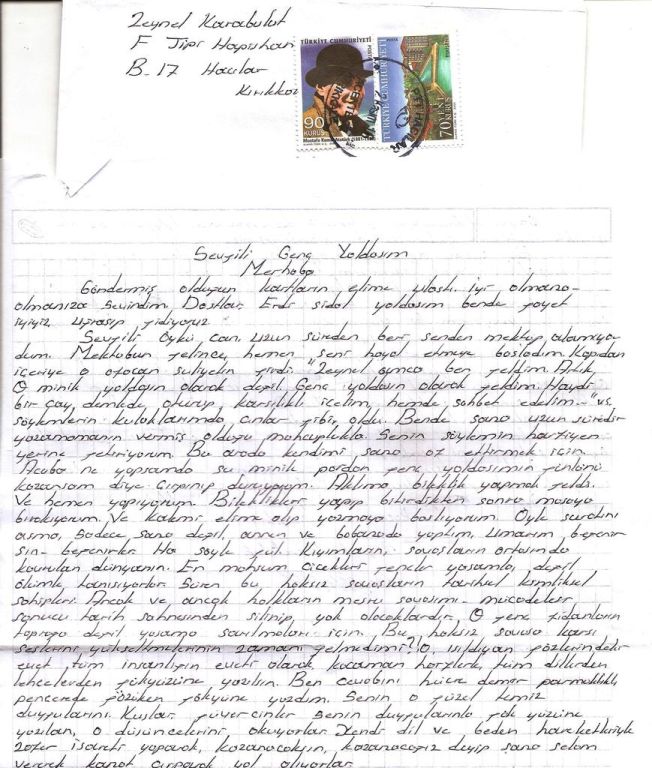 Zeynel Karabulut
F Tipi Hapishan
B-17 Hacılar
Kırıkka
TÜRKİYE CUMHURİYETİ
90
KURUŞ
TÜRKİYE CUMHURİYETİ
70 YENİ
KURUŞ
HACILAR
Sevgili Genç Yoldaşım
Merhaba
Göndermiş olduğun kartların elime ulaştı. İyi olmana-
olmanıza sevindim. Dostlar, Erdi sidal yoldaşım bende gayet
iyiyiz uğraşıp gidiyoruz
Sevgili öykü can, uzun süreden beri senden mektup alamıyor
dum. Mektubun gelince, hemen seni hayal etmeye başladım. Kapıdan
içeriye o afacan suliyetin girdi. "Zeynel amca ben geldim. Artık,
O minik yoldaşın olarak değil. Genç yoldaşın olarak geldim. Haydi
bir çay demlede oturup karşılıklı içelim, hemde sohbet edelim-" vs.
söylemlerin kulaklarımda çınlar gibi oldu. Bende sana uzun süredir
yazamamanın vermiş olduğu mahcuplukla. Senin söylemin harfiyen
yerine getiriyorum. Bu arada kendimi sana af ettirmek için.
Acaba ne yapsamda şu minik pardon genç yoldaşımın gönlünü
kazansam diye çırpınıp duruyorum. Aklıma bileklik yapmak geldi.
Ve hemen yapıyorum. Bileklikleri yapıp bitirdikten sonra masaya
bırakıyorum. Ve kalemi elime alıp yazmaya başlıyorum. Öyle suratını
asma, sadece sana değil, annen ve babanada yaptım, umarım beğenir
sin- beğenirler Ha şöyle gül. Kıyımların, savaşların ortasında
kavrulan dünyanın. En mahsum çiçekleri gençler yaşamla, değil
ölümle tanışıyorlar. Süren bu haksız savaşların tarihsel kimliksel
sahipleri. Ancak ve ancak halkların meşru savaşımı- mücadeleler
sonucu tarih sahnesinden silinip, yok olacaklardır. O genç fidanların
toprağa değil yaşama sarılmaları için. Bu haksız savaşa karşı
seslerini yükseltmelerinin zamanı gelmedimi?! O, ışıldıyan gözlerindeki
evet tüm insanlığın eveti olarak, kocaman harflerle, tüm dillerden
lehçelerden gökyüzüne yazılsın. Ben cevabını hücre demir parmaklıklı,
pencerede gözüken gökyüne yazdım. Senin o güzel temiz
duygularını. Kuşlar, güvercinler senin duygularınla gök yüzüne
yazılan, o düşüncelerini, okuyorlar. Kendi dil ve beden hareketleriyle
zafer işareti yaparak, kazanacaksın, kazanacağız deyip sana selam
vererek kanat çırparak yol alıyorlar